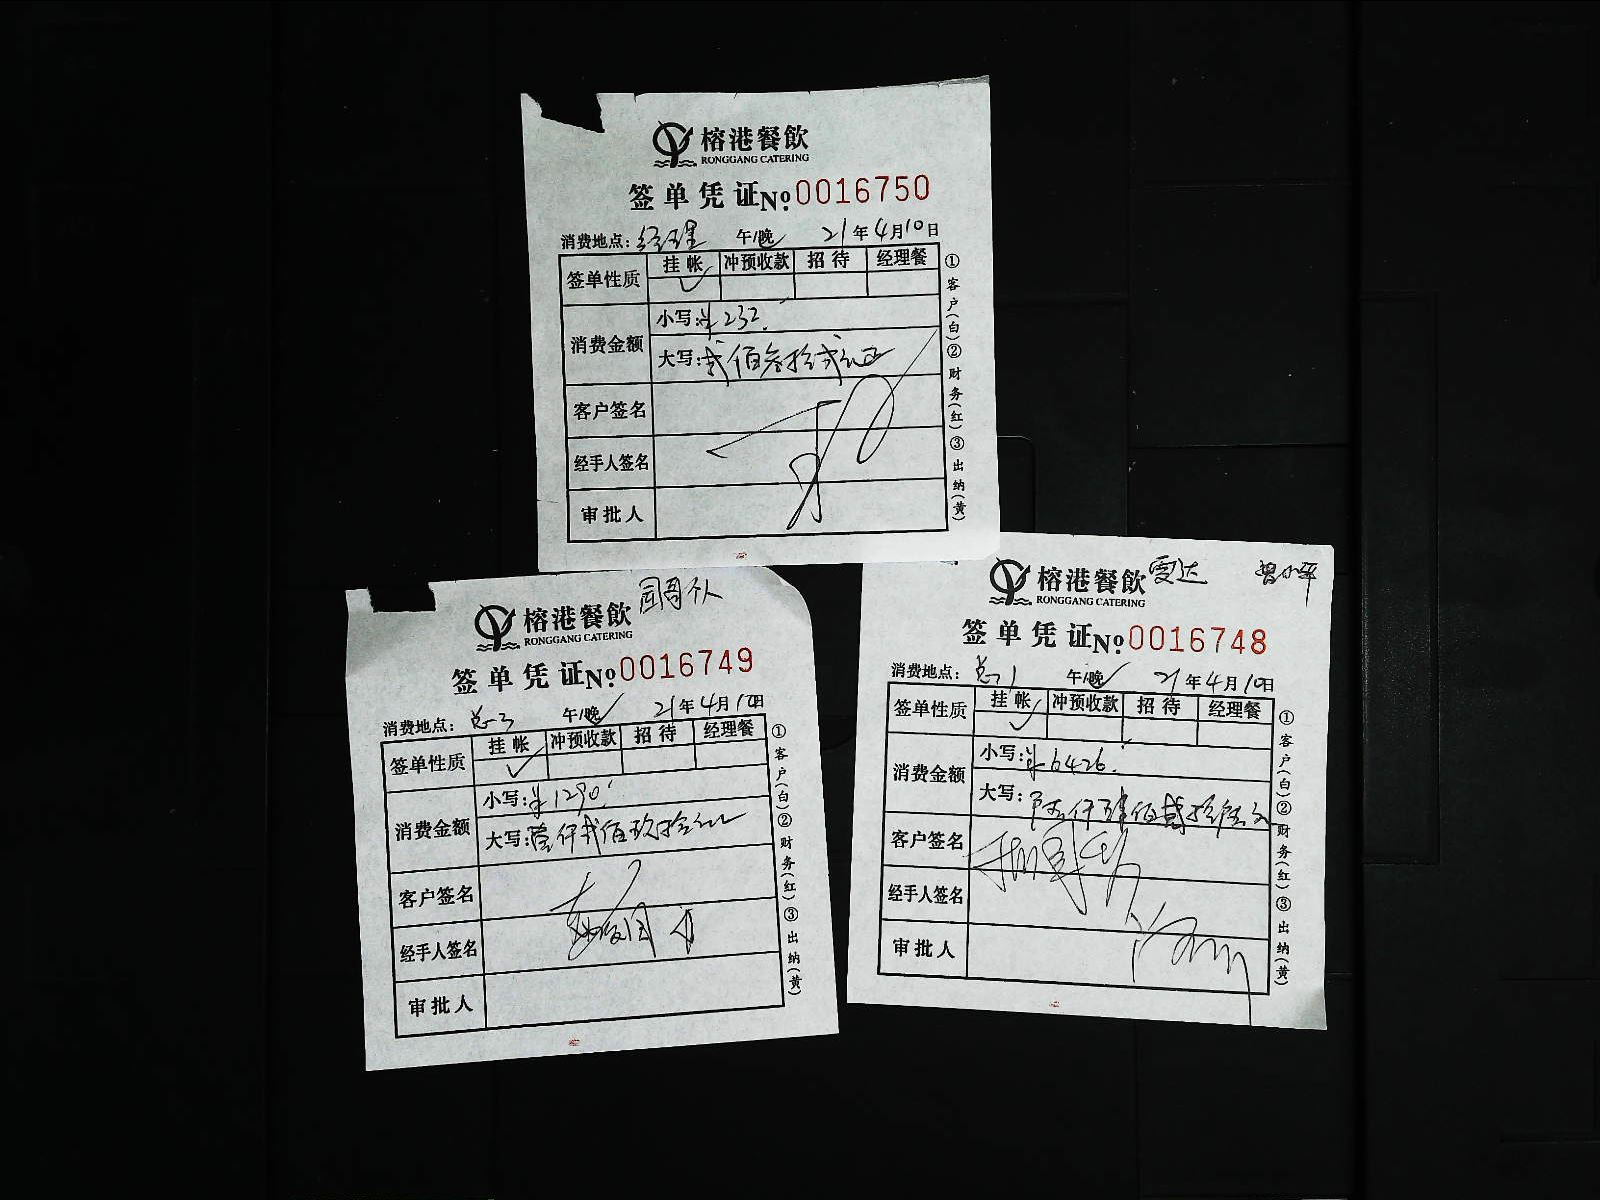 榕港餐飲
RONGGANG CATERING
签单凭证 No. 0016750
消费地点: 经理 午/晚 21年4月10日
签单性质 挂帐 冲预收款 招待 经理餐
消费金额
小写: ¥232.
大写: 贰佰叁拾贰元正
客户签名
经手人签名
审批人
①客户(白)②财务(红)③出纳(黄)
榕港餐飲
RONGGANG CATERING
签单凭证 No. 0016749
消费地点: 总3 午/晚 21年4月10日
签单性质 挂帐 冲预收款 招待 经理餐
消费金额
小写: ¥1290.
大写: 壹仟贰佰玖拾元
客户签名
经手人签名
审批人
①客户(白)②财务(红)③出纳(黄)
榕港餐飲 雷达 曾小平
RONGGANG CATERING
签单凭证 No. 0016748
消费地点: 总1 午/晚 21年4月10日
签单性质 挂帐 冲预收款 招待 经理餐
消费金额
小写: ¥6426.
大写: 陆仟肆佰贰拾陆元
客户签名
经手人签名
审批人
①客户(白)②财务(红)③出纳(黄)